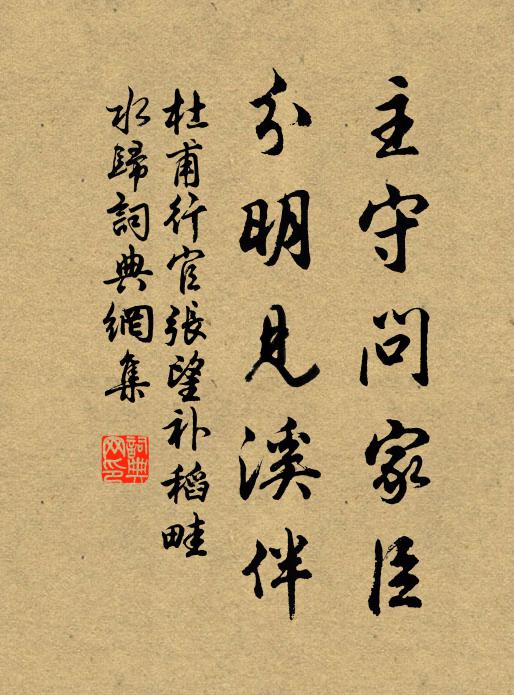 主守問家臣
分明見溪伴
杜甫行官張望补稻畦
水歸詞典網集
詞典
网印